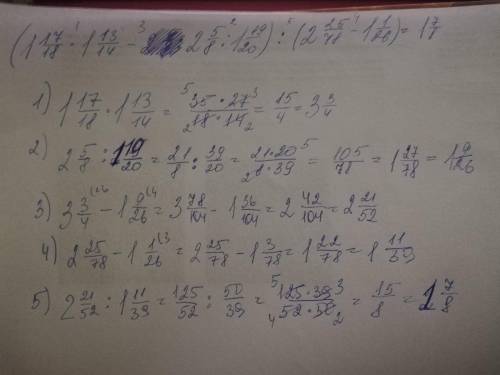 (1 17/18 · 1 13/14 - 2 5/8 : 1 19/20) : (2 25/78 - 1 1/26) = 1 7/8
1) 1 17/18 · 1 13/14 = 35 · 27/18 · 14 = 15/4 = 3 3/4
2) 2 5/8 : 1 19/20 = 21/8 : 39/20 = 21 · 20/8 · 39 = 105/78 = 1 27/78 = 1 9/26
3) 3 3/4 - 1 9/26 = 3 78/104 - 1 36/104 = 2 42/104 = 2 21/52
4) 2 25/78 - 1 1/26 = 2 25/78 - 1 3/78 = 1 22/78 = 1 11/39
5) 2 21/52 : 1 11/39 = 125/52 : 50/39 = 125 · 39/52 · 50 = 15/8 = 1 7/8